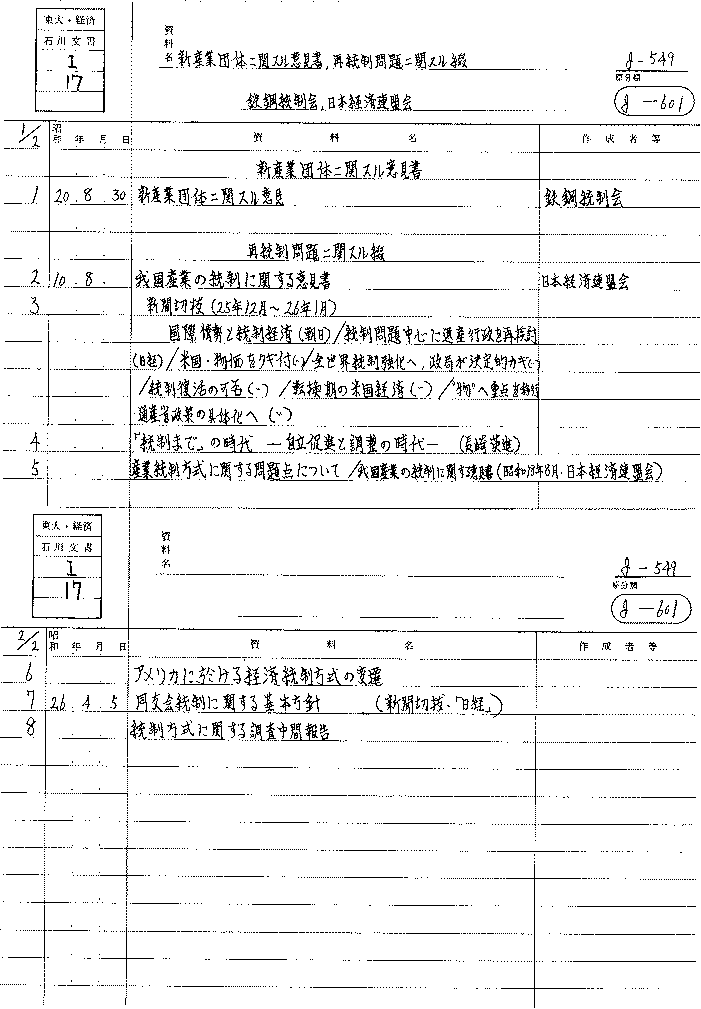 東大・経済
石川文書
I
17
資料名 新産業団体ニ関スル意見書,再統制問題ニ関スル綴
鉄鋼統制会,日本経済連盟会
J-549
J-601
1/2 昭和 年 月 日 資料名 作成者等
新産業団体ニ関スル意見書
1 20.8.30 新産業団体ニ関スル意見 鉄鋼統制会
再統制問題ニ関スル綴
2 10.8. 我国産業の統制に関する意見書 日本経済連盟会
3 新聞切抜(25年12月~26年1月)
国際情勢と統制経済(朝日)/統制問題中心に通産行政を再検討
(日経)/米国・物価をクギ付(〃)/全世界統制強化へ,政局が決定的カギ(〃)
/統制復活の可否(〃)/転換期の米国経済(〃)/"物"へ重点を
通産省政策の具体化へ(〃)
4 「統制まで」の時代 ―自立促進と調整の時代― (長崎英造)
5 産業統制方式に関する問題点について/我国産業の統制に関する意見書(昭和10年8月.日本経済連盟会)
東大・経済
石川文書
I
17
資料名
J-549
J-601
2/2 昭和 年 月 日 資料名 作成者等
6 アメリカにおける経済統制方式の変遷
7 26.4.5 同友会統制に関する基本方針 (新聞切抜、「日経」)
8 統制方式に関する調査中間報告